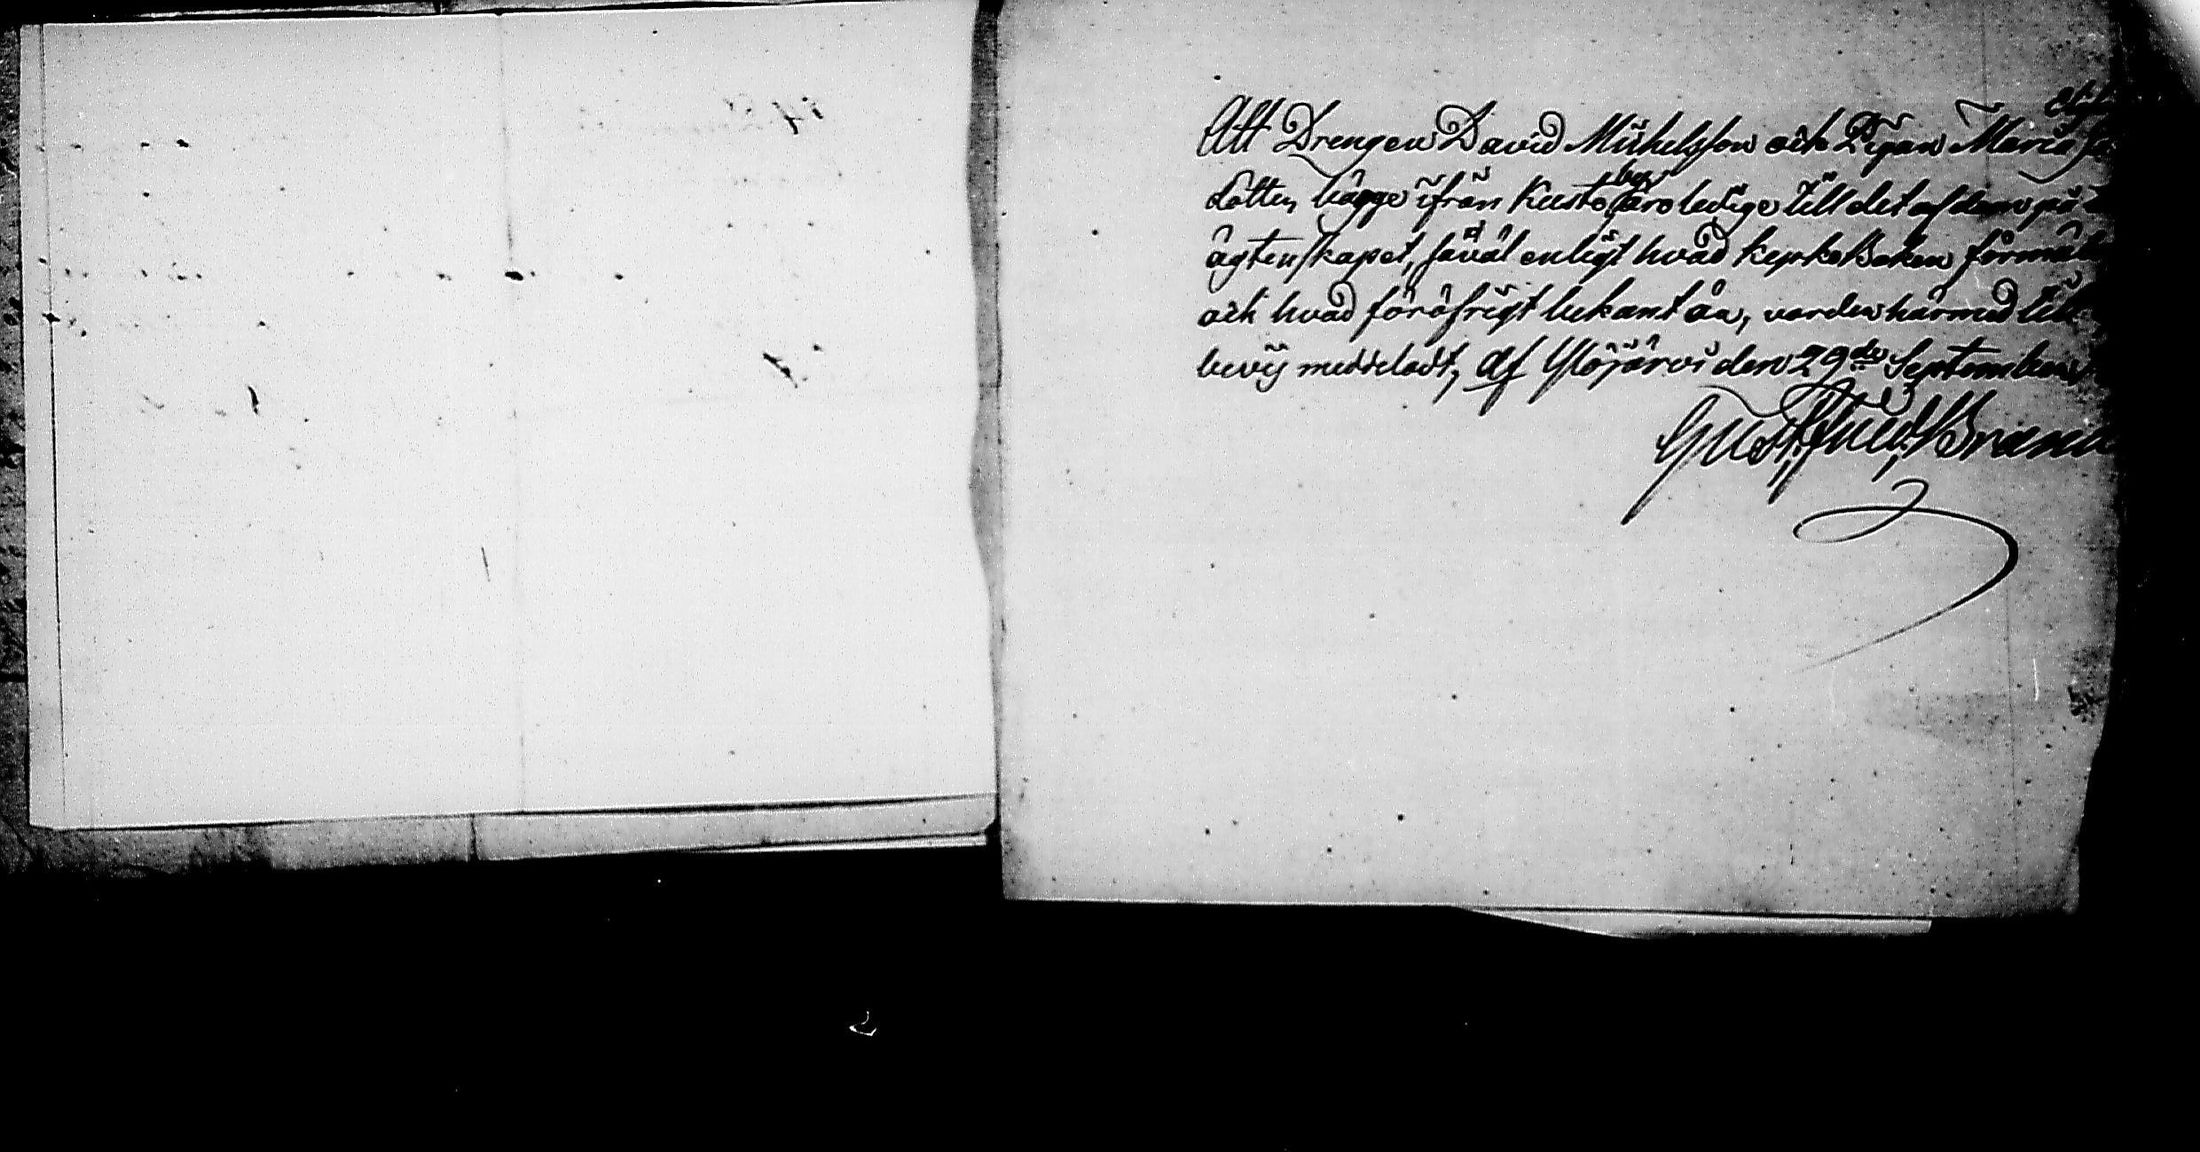 Att Drengen David Michelsson och Pigan Maria
dotter, bägge ifrån Kusto by äro ledige till det af dem på
ägtenskapet, såväl enligt hvad kyrkoBoken förmäl
och hvad föröfrigt bekant är, varder härmed till
bevis meddeladt, af Ylöjärvi den 29de September
Gust. Fried. Brand